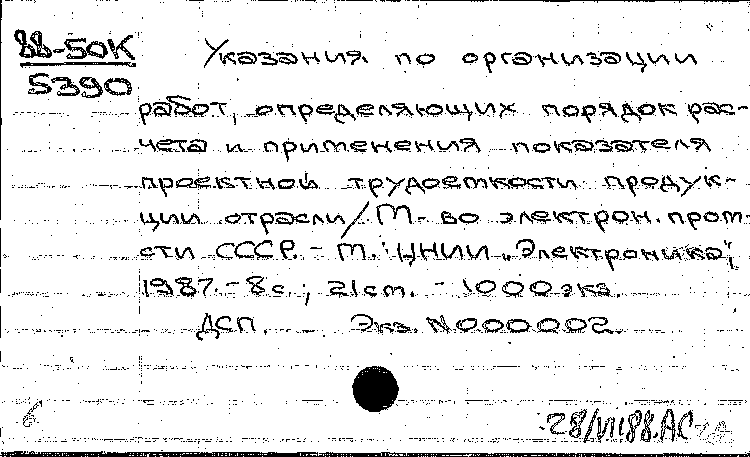 88-50К
5390
Указания по организации
работ, определяющих порядок рас-
чета и применения показателя
проектной трудоемкости продук-
ции отрасли/М-во электрон. пром-
сти СССР. - М.: ЦНИИ „Электроника",
1987. - 8с.; 21см. - 1000экз.
ДСП Экз. N000002.
б
28/VII88.АС